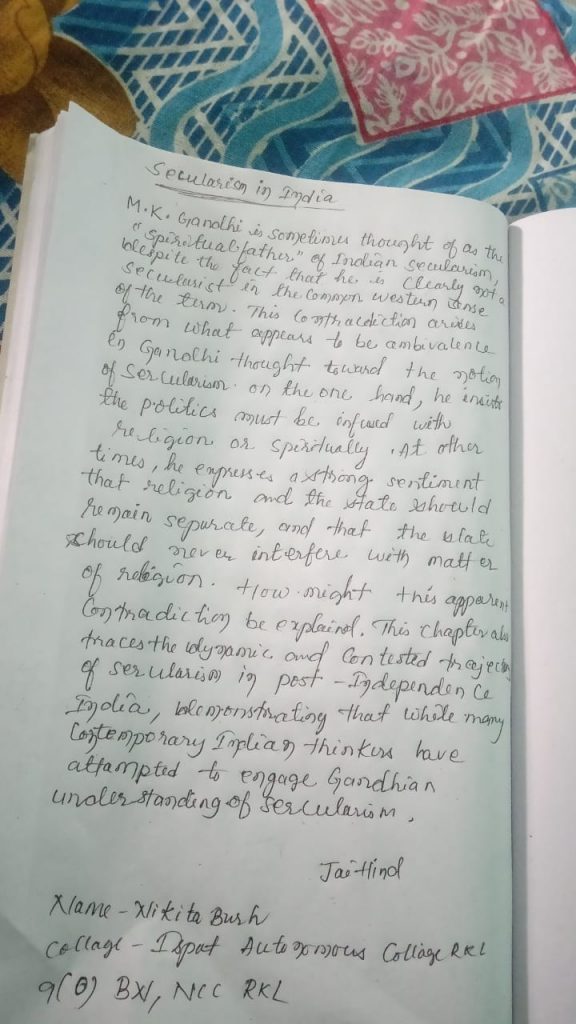 Secularism in India
M.K. Gandhi is sometimes thought of as the
"spiritual father" of Indian secularism,
despite the fact that he is clearly not a
secularist in the common western sense
of the term. This contracdiction arises
from what appears to be ambivalence
in Gandhi thought toward the notion
of sercularism. on the one hand, he insists
the politics must be infused with
religion or spiritually. At other
times, he expresses a strong sentiment
that religion and the state should
remain sepurate, and that the state
should never interfere with matter
of religion. How might this apparent
contradiction be explaind. This chapter also
traces the dynamic and contested trajectory
of sercularism in post - Independence
India, demonstrating that while many
contemporary Indian thinkers have
attampted to engage Gandhian
understanding of sercularism.
Jai Hind
Name - Nikita Bush
Collage - Ispat Autonomous Collage RKL
9(O) BN, NCC RKL